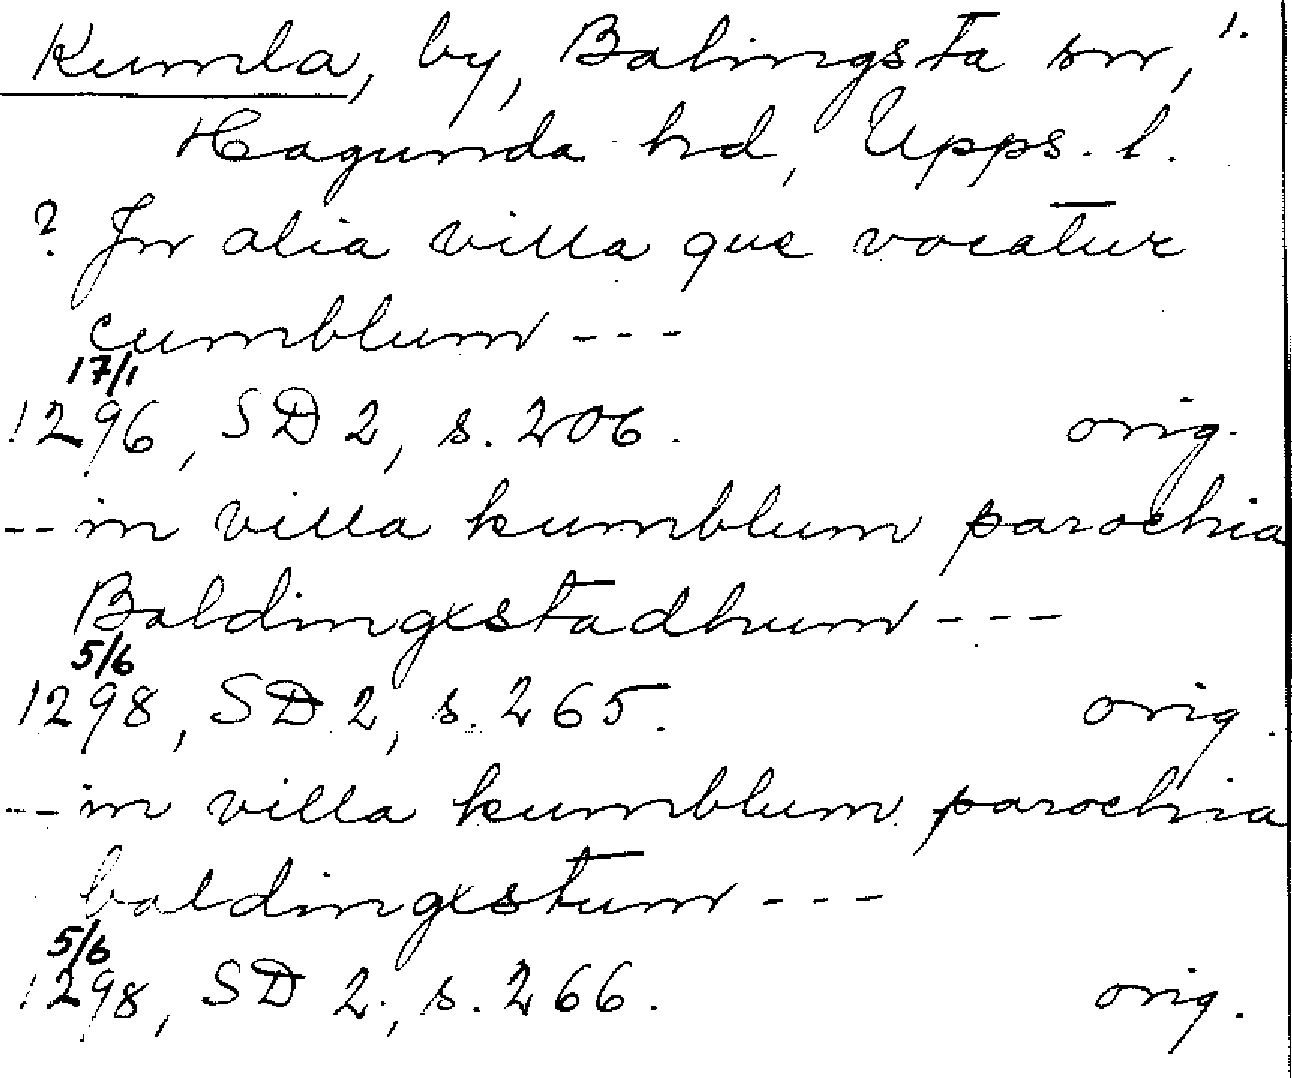 Kumla, by, Balingsta sn, 1.
Hagunda hd, Upps. l.
? Jn alia villa que vocatur
cumblum ---
17/1
1296, SD 2, s. 206. orig.
-- in villa kumblum parochia
Baldingxstadhum ---
5/6
1298, SD 2, s. 265. orig.
-- in villa kumblum parochia
baldingxstum ---
5/6
1298, SD 2, s. 266. orig.